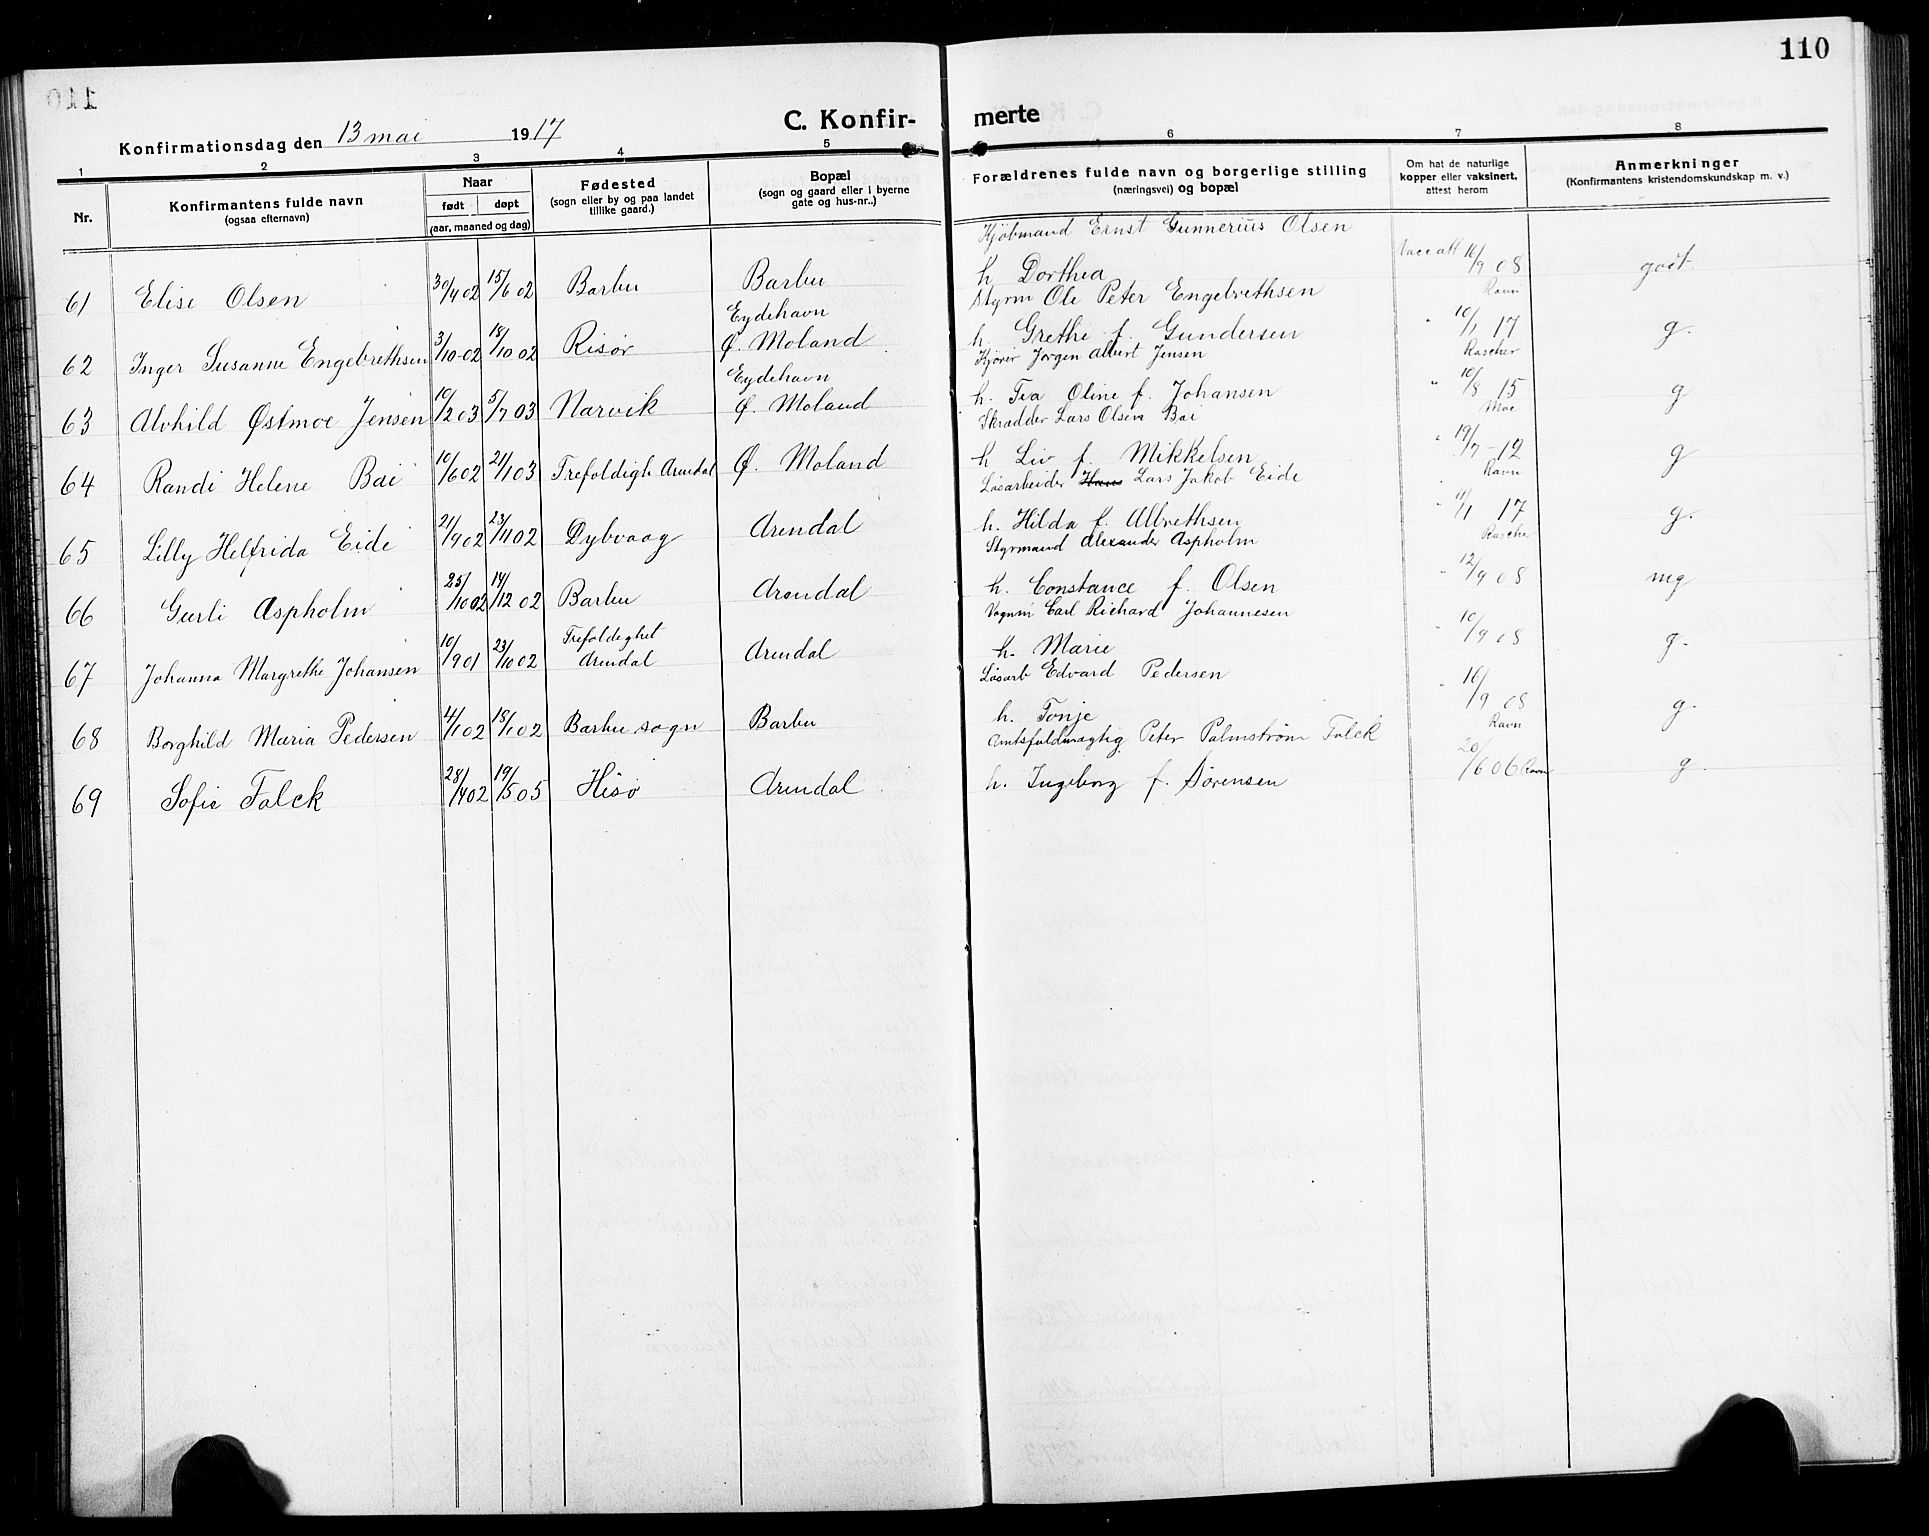 110
Konfirmationsdag den 13 mai 1917
C. Konfirmerte
1 2 3 4 5 6 7 8
Nr.
Konfirmantens fulde navn
(ogsaa efternavn)
Naar
født døpt
(aar, maaned og dag)
Fødested
(sogn eller by og paa landet
tillike gaard.)
Bopæl
(sogn og gaard eller i byerne
gate og hus-nr..)
Forældrenes fulde navn og borgerlige stilling
(næringsvei) og bopæl
Om hat de naturlige
kopper eller vaksinert,
attest herom
Anmerkninger
(Konfirmantens kristendomskundskap m. v.)
Kjøbmand Ernst Gunnerius Olsen
61 Elise Olsen 30/4 02 15/6 02 Barbu Barbu h Dorthea Vacc att 16/9 08 Ravn godt
Eydehavn Styrm Ole Peter Engebrethsen
62 Inger Susanne Engebrethsen 3/10-02 18/10 02 Risør Ø. Moland h. Grethe f. Gundersen " 10/1 17 Rascher g.
Eydehavn Kjører Jørgen Albert Jensen
63 Alvhild Østmoe Jensen 10/2 03 5/7 03 Narvik Ø. Moland h. Tea Oline f. Johansen " 10/8 15 Moe g
Skrædder Lars Olsen Bai
64 Randi Helene Bai 10/6 02 21/1 03 Trefoldigh. Arendal Ø. Moland h Liv f. Mikkelsen " 19/7-12 Ravn g
Løsarbeider Hans Lars Jakob Eide
65 Lilly Helfrida Eide 21/9 02 23/11 02 Dybvaag Arendal h. Hilda f. Albrethsen " 11/1 17 Rascher g.
Styrmand Alexander Aspholm
66 Gurli Aspholm 25/10 02 14/12 02 Barbu Arendal h. Constance f. Olsen " 12/9 08 mg
Vognm Carl Richard Johannesen
67 Johanna Margrethe Johansen 10/9 01 23/10 02 Trefoldeghet Arendal Arendal h. Marie " 10/9 08 g.
Løsarb Edvard Pedersen
68 Borghild Maria Pedersen 4/1 02 18/1 02 Barbu sogn Barbu h. Tonje " 16/9 08 Ravn g.
Amtsfuldmægtig Peter Palmstrøm Falck
69 Sofie Falck 28/4 02 19/5 05 Hisø Arendal h. Ingeborg f. Sørensen 20/6 06 Ravn g.